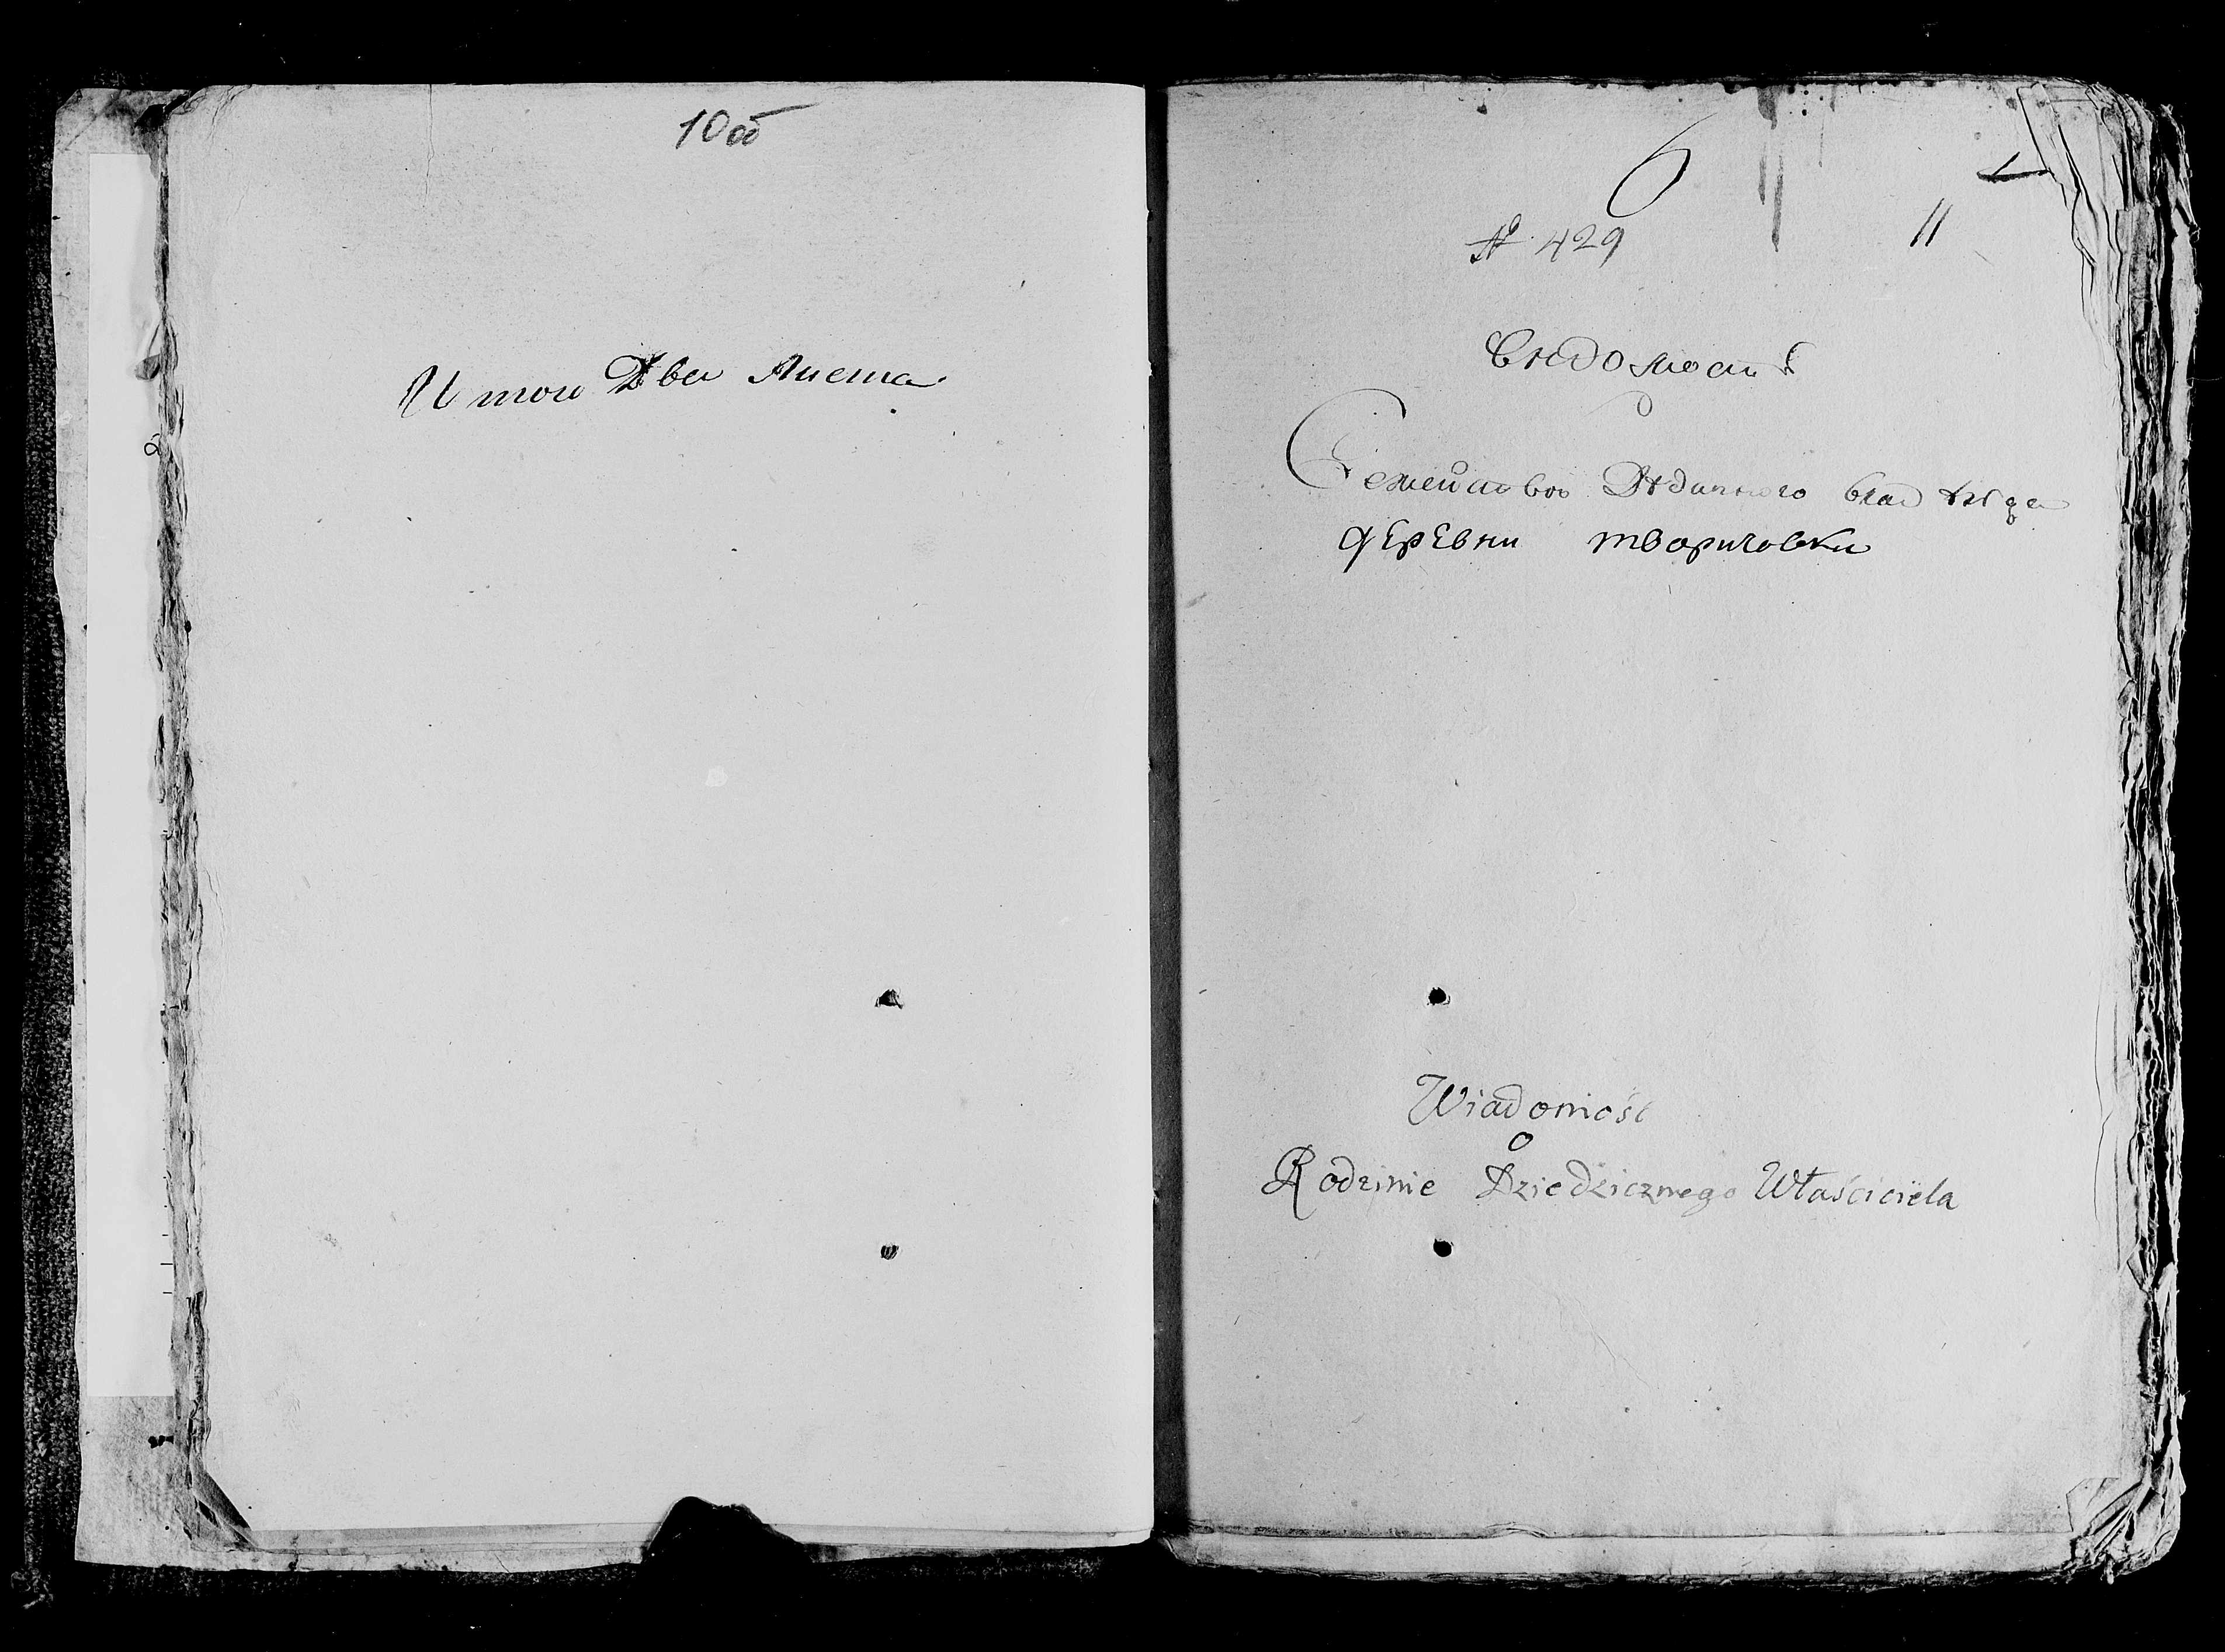 10 об
И того Два Листа
6
№ 429
11
Вѣдомость
О
Семействѣ Дѣдичного владѣльца
деревни творичовки
Wiadomość
o
Rodzinie Dziedzicznego Właściciela